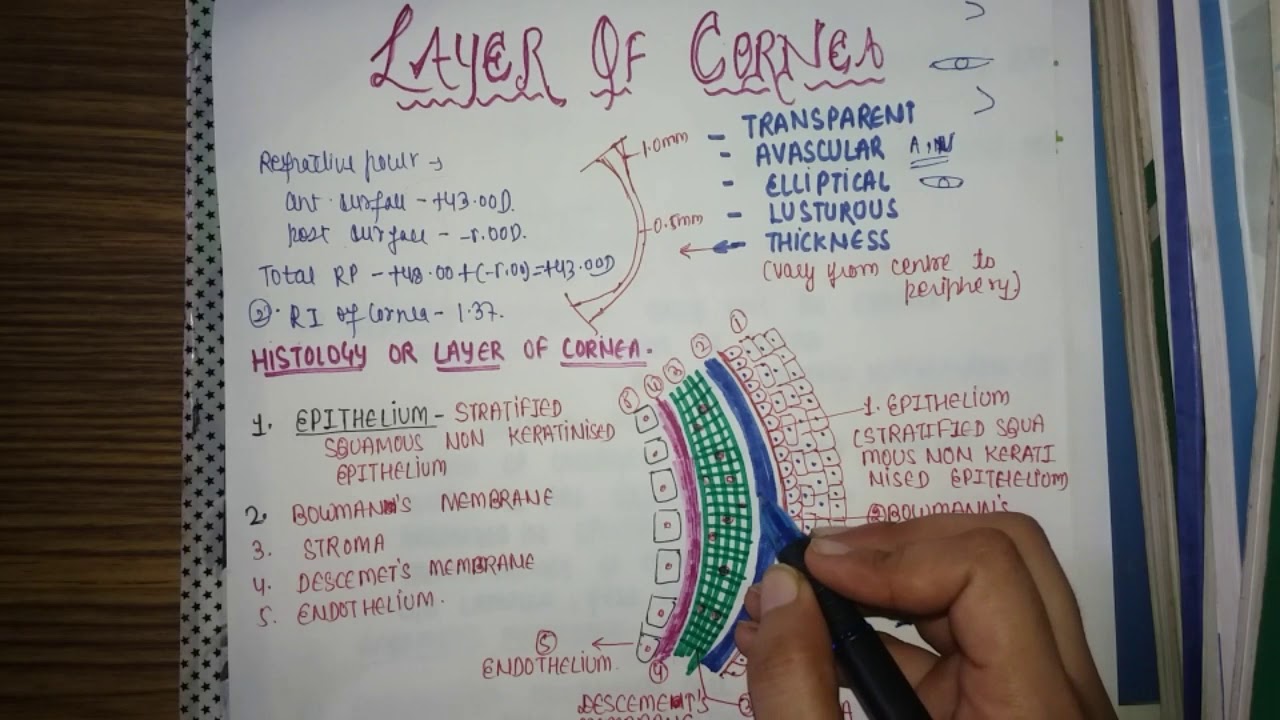 LAYER OF CORNEA
Refractive power →
ant. surface - +43.00D.
post surface - -5.00D.
Total RP - +48.00+(-5.00)=+43.00D
②. RI of Cornea - 1.37.
1.0mm
0.5mm
- TRANSPARENT
- AVASCULAR
- ELLIPTICAL
- LUSTUROUS
- THICKNESS
(vary from centre to
periphery)
HISTOLOGY OR LAYER OF CORNEA.
1. EPITHELIUM - STRATIFIED
SQUAMOUS NON KERATINISED
EPITHELIUM
2. BOWMAN'S MEMBRANE
3. STROMA
4. DESCEMET'S MEMBRANE
5. ENDOTHELIUM.
⑤ ④ ③ ② ①
1. EPITHELIUM
(STRATIFIED SQUA
MOUS NON KERATI
NISED EPITHELIUM)
② BOWMANN'S
⑤
ENDOTHELIUM.
④
DESCEMENT'S
MEMBRANE